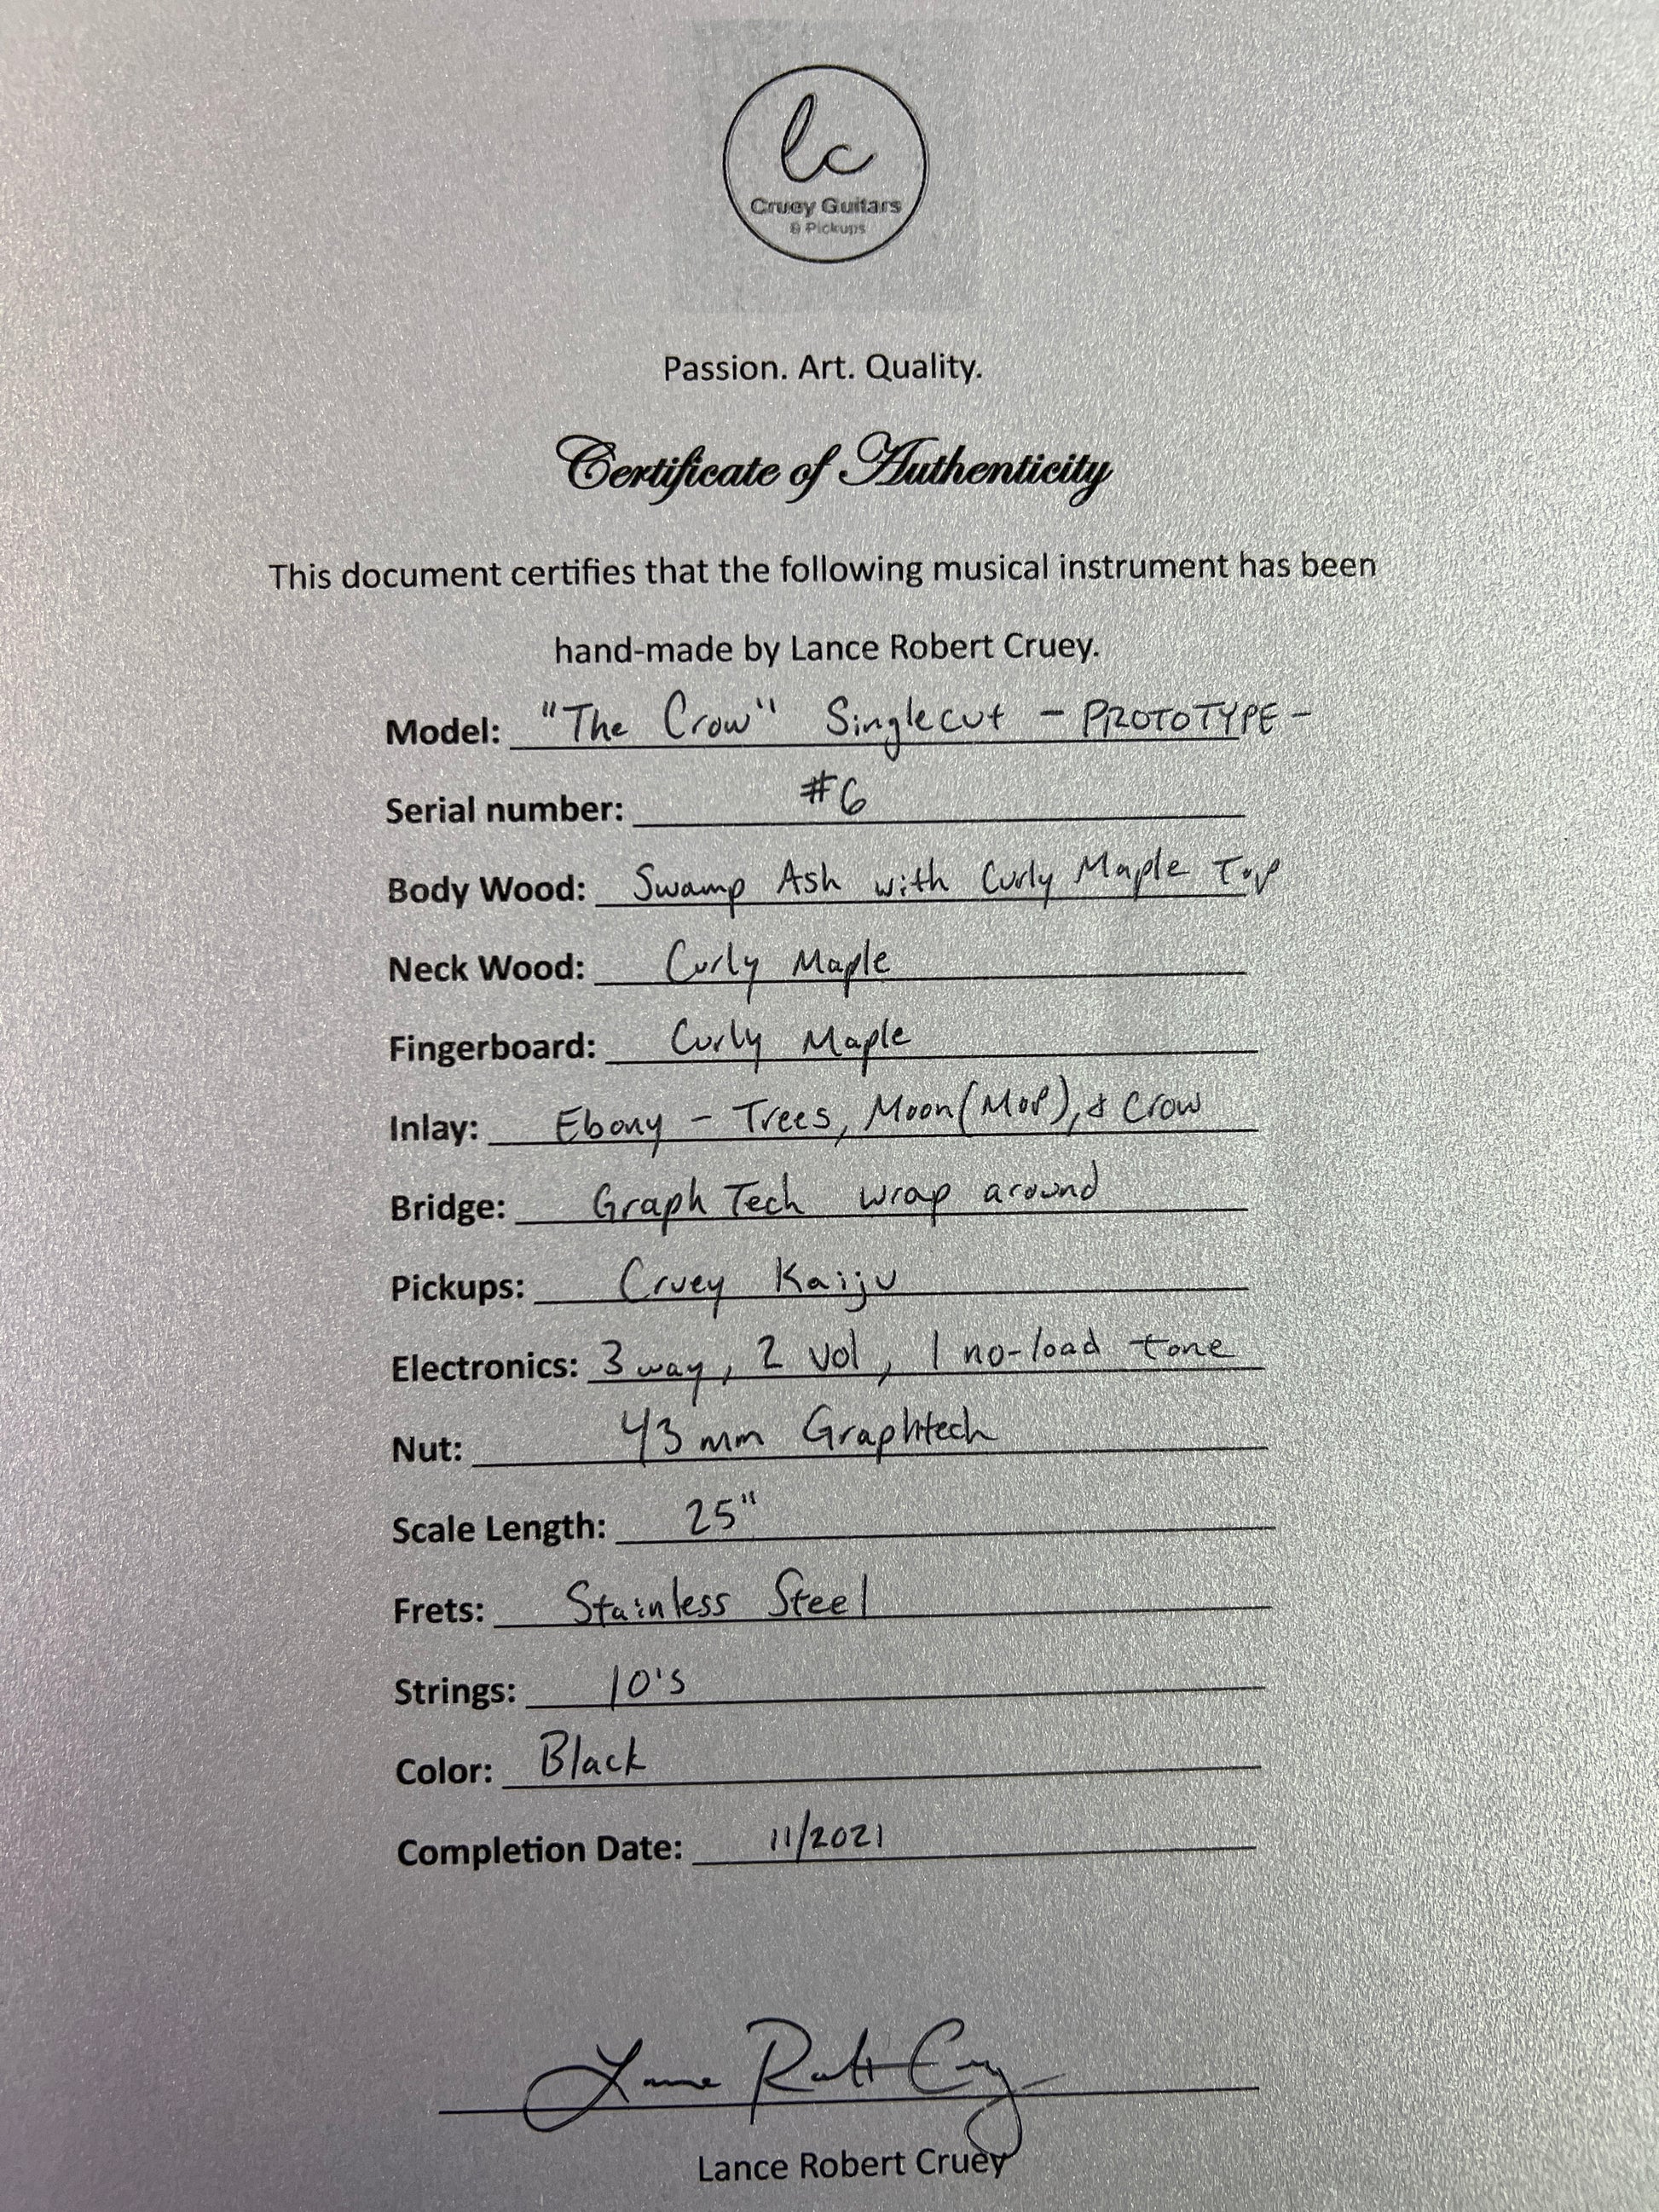 lc
Cruey Guitars
& Pickups
Passion. Art. Quality.
Certificate of Authenticity
This document certifies that the following musical instrument has been
hand-made by Lance Robert Cruey.
Model: "The Crow" Singlecut - PROTOTYPE -
Serial number: #6
Body Wood: Swamp Ash with Curly Maple Top
Neck Wood: Curly Maple
Fingerboard: Curly Maple
Inlay: Ebony - Trees, Moon (MOP), & Crow
Bridge: Graph Tech wrap around
Pickups: Cruey Kaiju
Electronics: 3 way, 2 vol, 1 no-load tone
Nut: 43 mm Graphtech
Scale Length: 25"
Frets: Stainless Steel
Strings: 10's
Color: Black
Completion Date: 11/2021
Lance Robert Cruey
Lance Robert Cruey